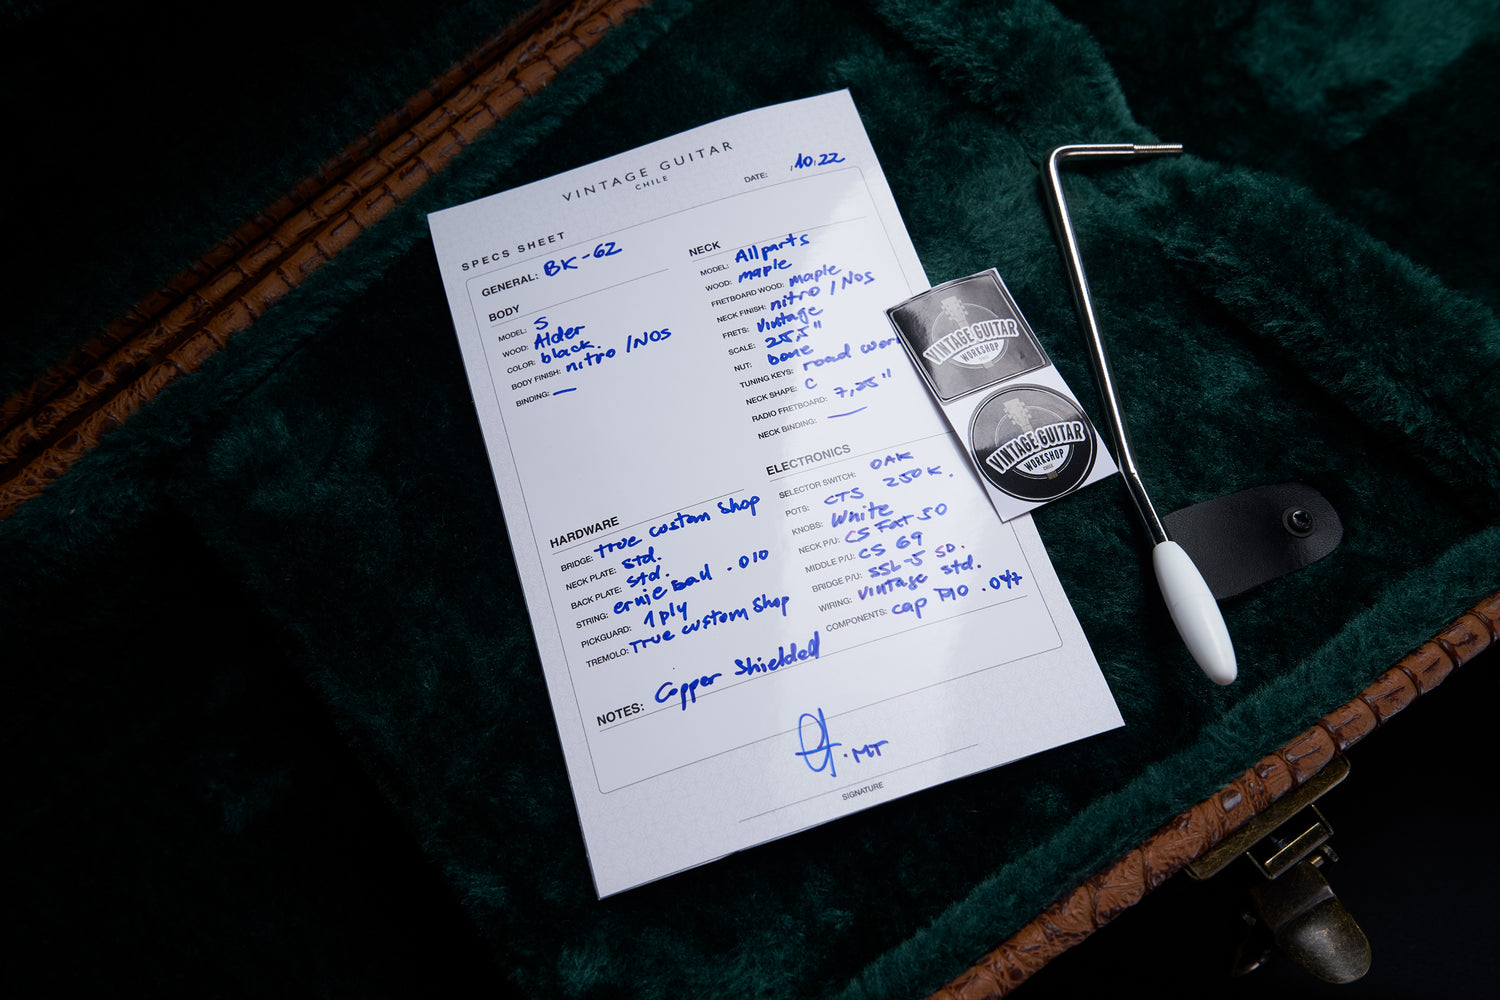 VINTAGE GUITAR
CHILE
DATE: ,10,22
SPECS SHEET
GENERAL: BK-62
BODY
MODEL: S
WOOD: Alder
COLOR: black.
BODY FINISH: nitro /NOS
BINDING: —
NECK
MODEL: Allparts
WOOD: maple
FRETBOARD WOOD: maple
NECK FINISH: nitro /NOS
FRETS: Vintage
SCALE: 25,5"
NUT: bone
TUNING KEYS: road wor
NECK SHAPE: C
RADIO FRETBOARD: 7,25"
NECK BINDING: —
HARDWARE
BRIDGE: true custom shop
NECK PLATE: std.
BACK PLATE: std.
STRING: ernie Ball .010
PICKGUARD: 1 ply
TREMOLO: True custom shop
ELECTRONICS
SELECTOR SWITCH: OAK
POTS: CTS 250K.
KNOBS: White
NECK P/U: CS Fat 50
MIDDLE P/U: CS 69
BRIDGE P/U: SSL-5 SD.
WIRING: vintage std.
COMPONENTS: cap .047
NOTES: Copper Shielded
MT
SIGNATURE
VINTAGE GUITAR
WORKSHOP
VINTAGE GUITAR
WORKSHOP
CHILE